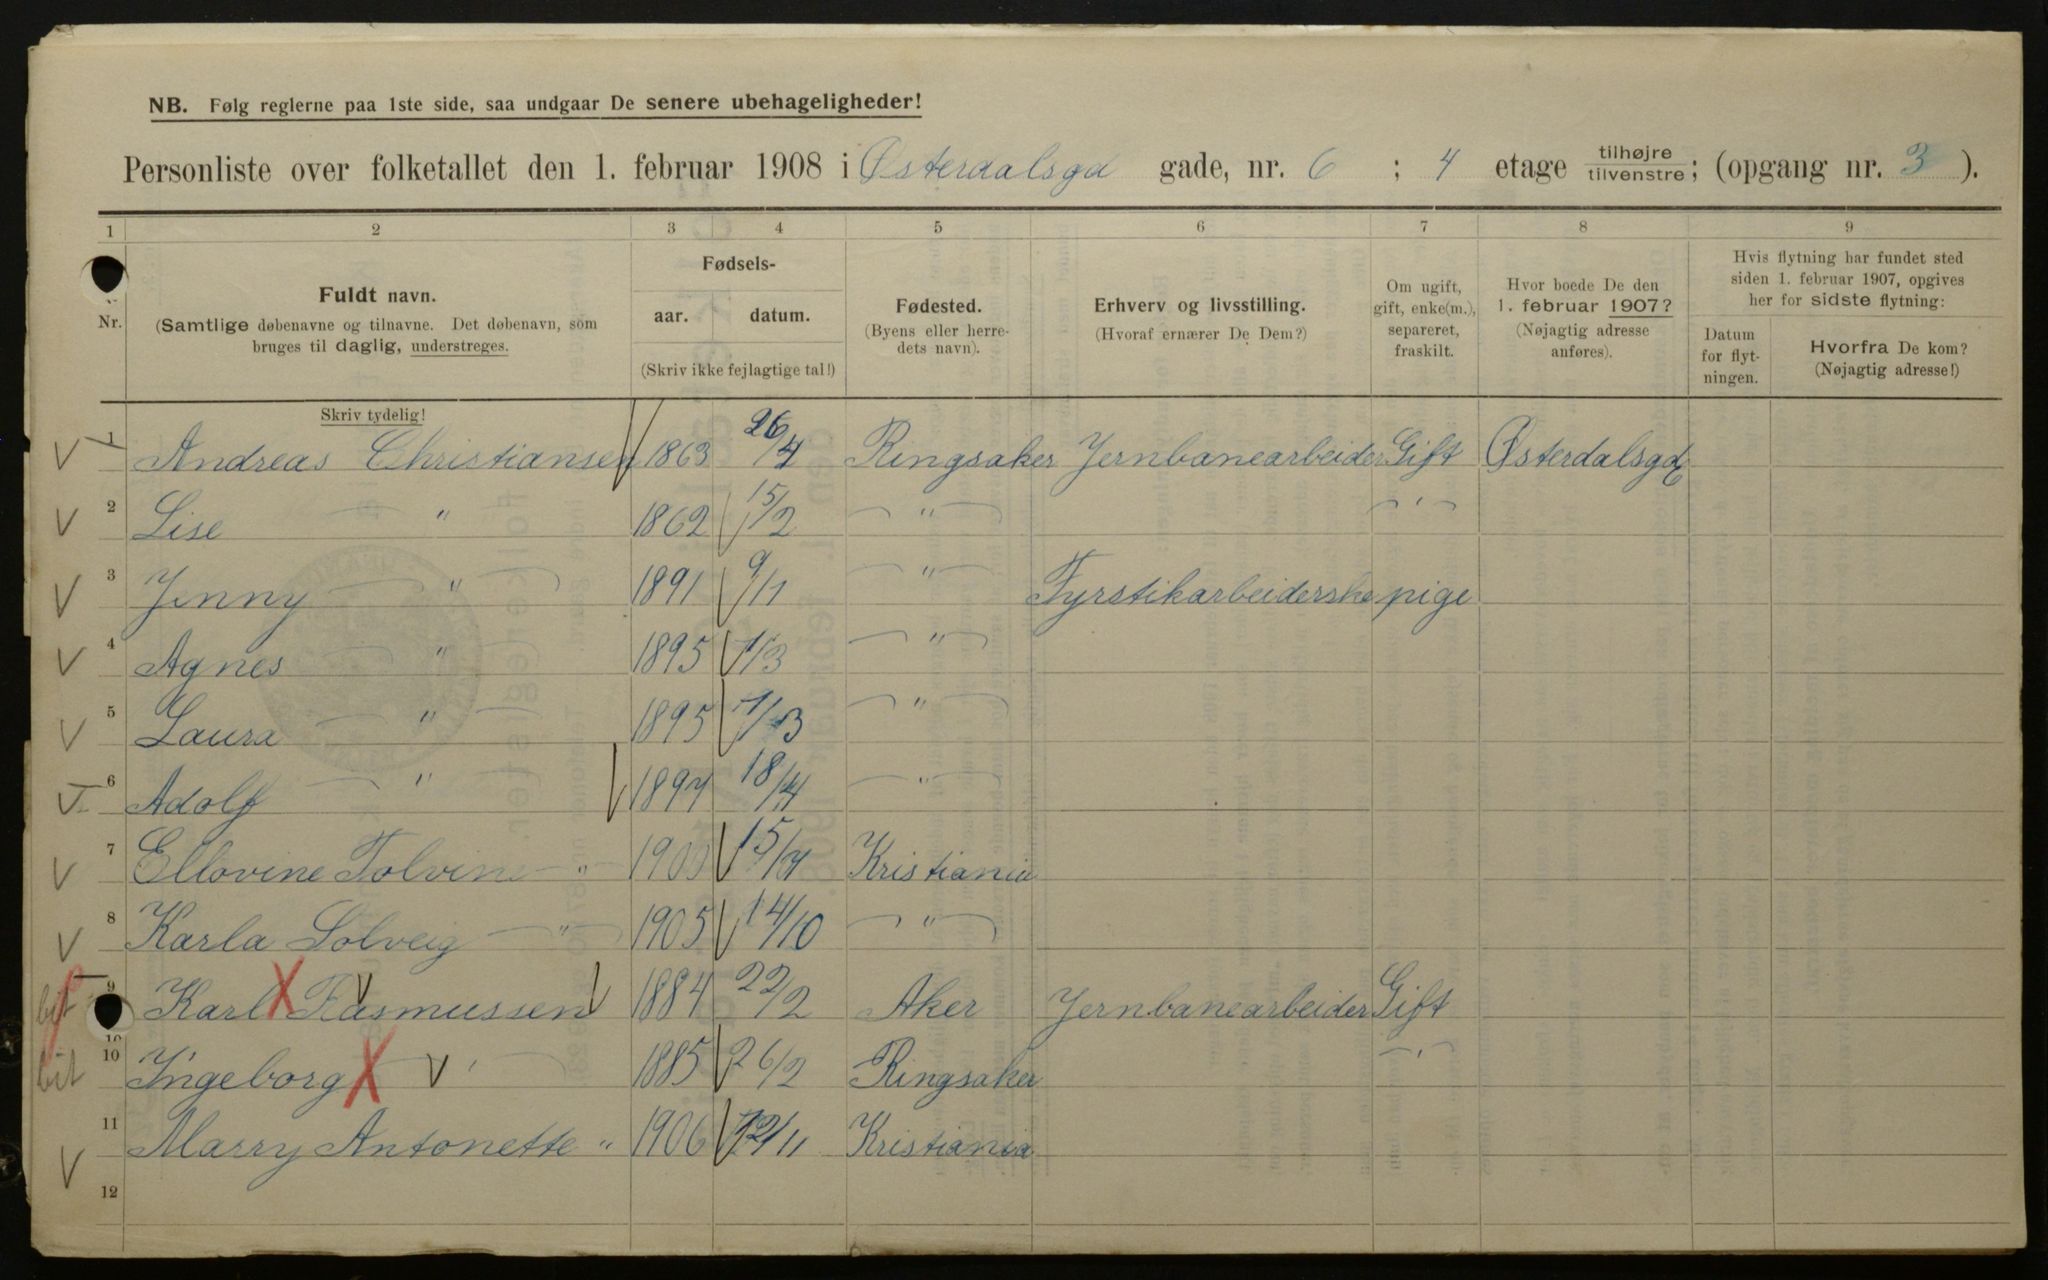 NB. Følg reglerne paa 1ste side, saa undgaar De senere ubehageligheder!
Personliste over folketallet den 1. februar 1908 i Østerdalsgd gade, nr. 6 ; 4 etage tilhøjre tilvenstre; (opgang nr. 3 ).
1 2 3 4 5 6 7 8 9
Nr.
Fuldt navn.
(Samtlige døbenavne og tilnavne. Det døbenavn, som
bruges til daglig, understreges.
Skriv tydelig!
Fødsels-
aar. datum.
(Skriv ikke fejlagtige tal!)
Fødested.
(Byens eller herre-
dets navn).
Erhverv og livsstilling.
(Hvoraf ernærer De Dem?)
Om ugift,
gift, enke(m.),
separeret,
fraskilt.
Hvor boede De den
1. februar 1907?
(Nøjagtig adresse
anføres).
Hvis flytning har fundet sted
siden 1. februar 1907, opgives
her for sidste flytning:
Datum
for flyt-
ningen.
Hvorfra De kom?
(Nøjagtig adresse!)
1 Andreas Christiansen 1863 26/4 Ringsaker Jernbanearbeider Gift Østerdalsgd 6
2 Lise " 1862 15/2 " "
3 Jenny " 1891 9/11 " Fyrstikarbeiderske pige
4 Agnes " 1895 1/3 "
5 Laura " 1895 1/3 "
6 Adolf " 1897 18/4 "
7 Ellovine Tolvine " 1900 15/4 Kristiania
8 Karla Solveig " 1905 14/10 "
bit 9 Karl Rasmussen 1884 22/2 Aker Jernbanearbeider Gift
10
bit 10 Ingeborg " 1885 26/2 Ringsaker "
11 Marry Antonette " 1906 /11 Kristiania
12